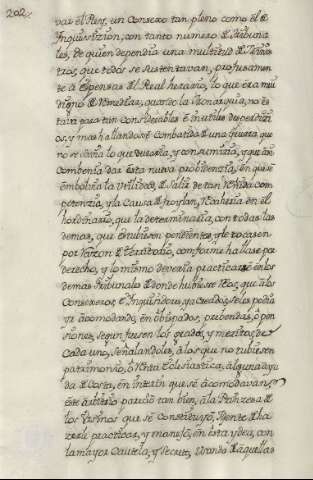 202.
var el Rey, un Consexo tan pleno como el de
Ynquissizion, con tanto numero de tribuna
les, de quien dependia una multitud de Minis
tros, que todos se sustentavan, profusamen
te à expensas del Real herario, lo que era mui
digno de remediar, quando la Monarquia, no es
tava para tan considerables è inutiles desperdizi
os, y mas hallandose combatida de una guerra que
no se savia lo que duraria, y consumiria, y que an
embolvia la utilidad, de salir de tan
potenzia, y la Causa de
hordinario, que la determinaria, con todas las
demas, que estubiesen pendientes, y le tocasen
por razon de territorio, conforme hallase por
derecho, y lo mismo deveria practicarse en los
demas tribunales de donde hubiese Reos, que à los
Consexeros, è Ynquisidores, ya creados, se les podia
yr acomodando, en obispados, prebendas, ò pen
siones, segun fuesen los grados, y meritos de
cada uno, señalandoles, à los que no tubiesen
patrimonio, ò Renta Eclesiastica, alguna ayu
da de Costa, en interin que se acomodavan,
Este arbitrio parezio tan bien, à la Prinzesa de
los Ursinos que se constituyò, Agente de ha
zerle practicar, y manejò, en esta ydea, con
la mayor Cautela, y Secreto, usando de aquellas